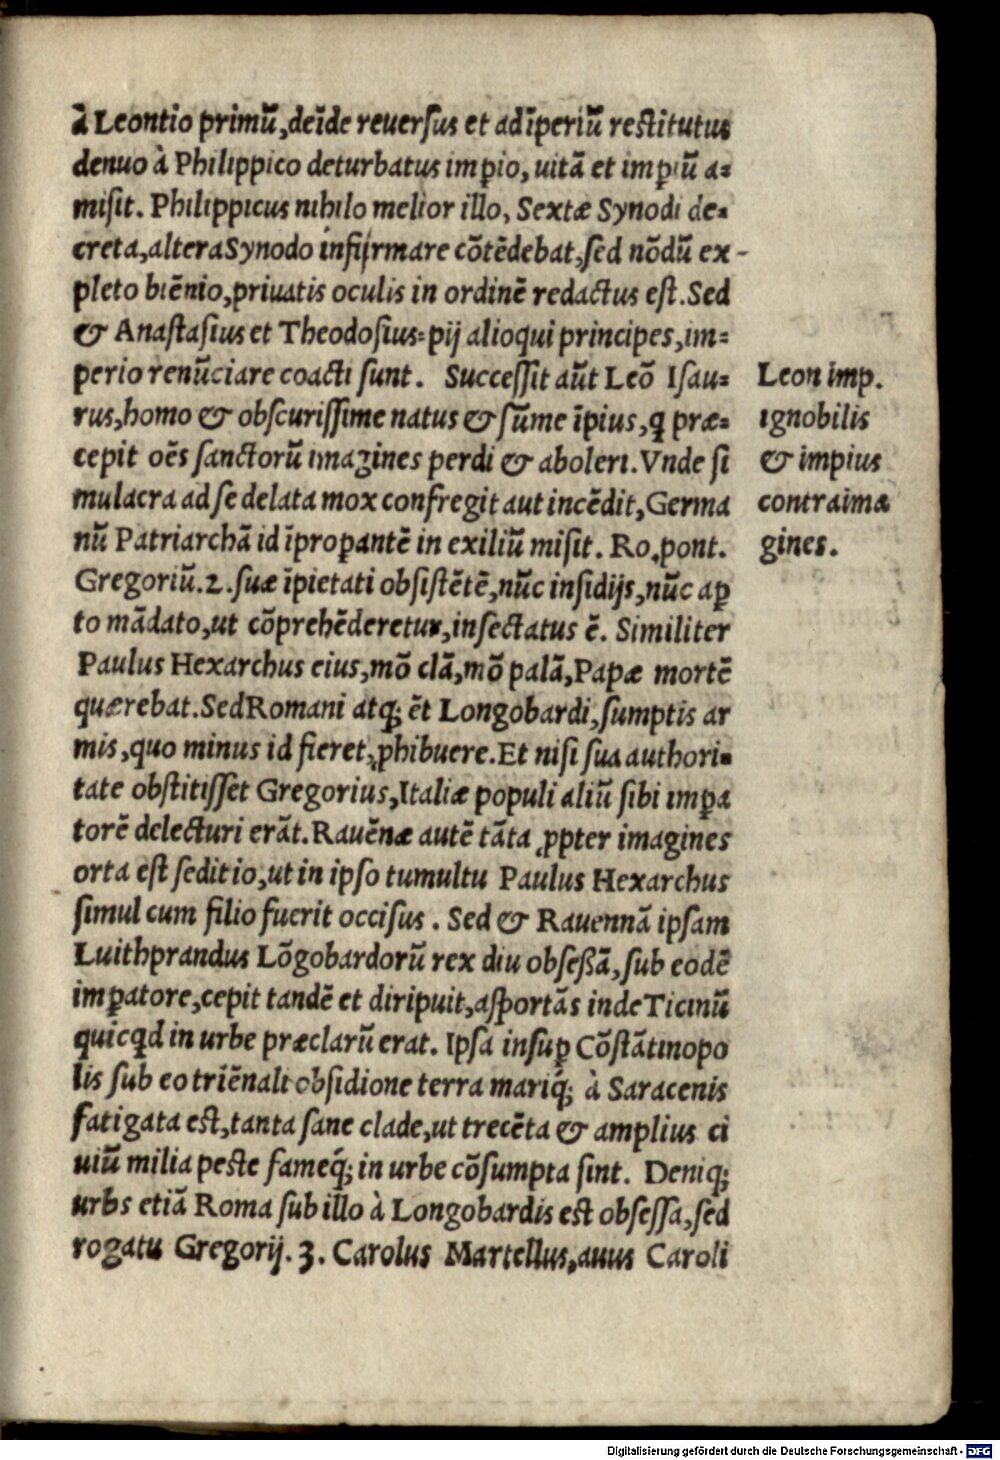 à Leontio primũ, deĩde reuersus et ad ĩperiũ restitutus
denuo à Philippico deturbatus imꝑio, uitã et imꝑiũ a=
misit. Philippicus nihilo melior illo, Sextæ Synodi de=
creta, altera Synodo infiirmare cõtẽdebat, sed nõdũ ex-
pleto biẽnio, priuatis oculis in ordinẽ redactus est. Sed
& Anastasius et Theodosius: pij alioqui principes, im=
perio renũciare coacti sunt. Successit aũt Leõ Isau=
rus, homo & obscurissime natus & sũme ĩpius, ꝗ præ=
cepit oẽs sanctorũ imagines perdi & aboleri. Vnde si
mulacra ad se delata mox confregit aut incẽdit, Germa
nũ Patriarchã id ĩproꝑantẽ in exiliũ misit. Ro. pont.
Gregoriũ. 2. suæ ĩpietati obsistẽtẽ, nũc insidijs, nũc aꝑ
to mãdato, ut cõprehẽderetur, insectatus ẽ. Similiter
Paulus Hexarchus eius, mõ clã, mõ palã, Papæ mortẽ
quærebat. Sed Romani atq; ẽt Longobardi, sumptis ar
mis, quo minus id fieret, ꝓhibuere. Et nisi sua authori=
tate obstitisset Gregorius, Italiæ populi aliũ sibi imꝑa
torẽ delecturi erãt. Rauẽnæ autẽ tãta ꝓpter imagines
orta est seditio, ut in ipso tumultu Paulus Hexarchus
simul cum filio fuerit occisus. Sed & Rauennã ipsam
Luithprandus Lõgobardorũ rex diu obseßã, sub eodẽ
imꝑatore, cepit tandẽ et diripuit, asportãs inde Ticinũ
quicꝗd in urbe præclarũ erat. Ipsa insuꝑ Cõstãtinopo
lis sub eo triẽnali obsidione terra mariq́; à Saracenis
fatigata est, tanta sane clade, ut trecẽta & amplius ci
uiũ milia peste fameq́; in urbe cõsumpta sint. Deniq;
urbs etiã Roma sub illo à Longobardis est obsessa, sed
rogatu Gregorij. 3. Carolus Martellus, auus Caroli
Leon imp.
ignobilis
& impius
contra ima
gines.
Digitalisierung gefördert durch die Deutsche Forschungsgemeinschaft - DFG